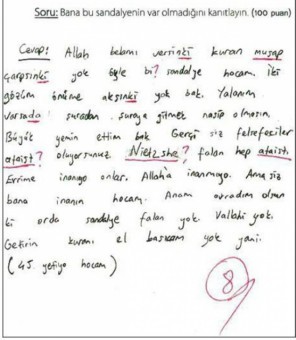 Soru: Bana bu sandalyenin var olmadığını kanıtlayın. (100 puan)
Cevap: Allah belamı versinki kuran muşap
çarpsınki yok öyle bi? sandalye hocam. İki
gözüm önüme akşınki yok bak. Yalanım
varsada suradan suraya gitmek nasip olmasın.
Büyük yemin ettim bak Gerçi siz felsefeciler
ataist? oluyorsunuz. Nietzshe? falan hep ataist.
Evrime inanıyo onlar. Allah'a inanmıyo. Ama siz
bana inanın hocam. Anam avradım olsun
ki orda sandalye falan yok. Vallahi yok.
Getirin kuranı el basıcam yok yani.
(45 yetiyo hocam)
8